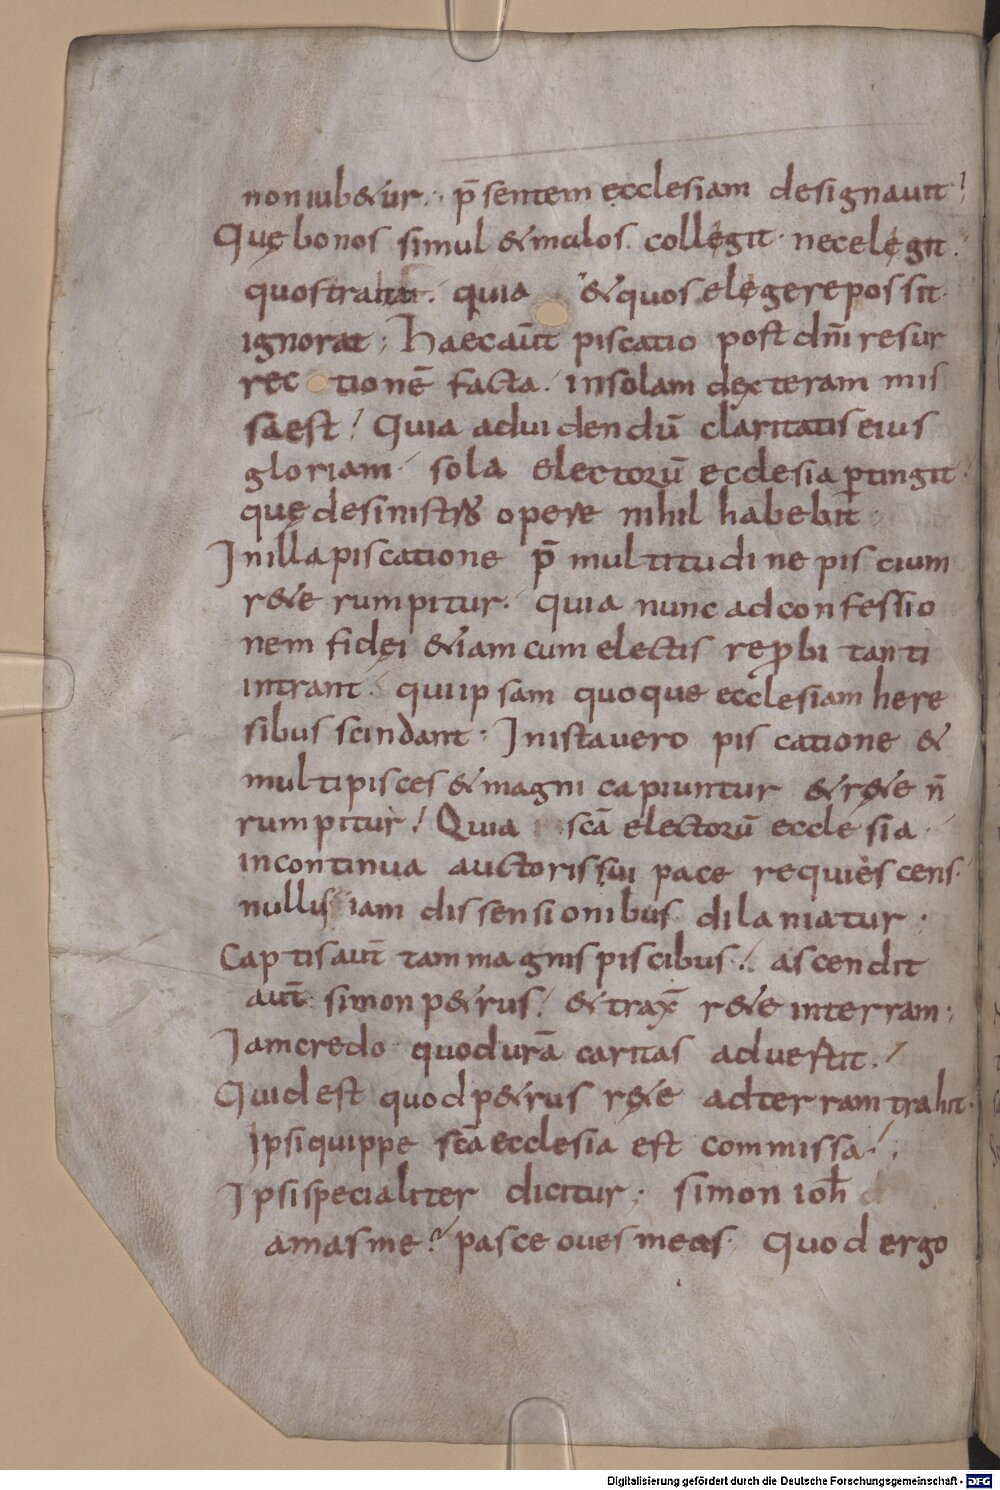 non iub&ur. p̄sentem ecclesiam designauit!
Quę bonos simul & malos. collęgit. nec elęgit.
quos trahat. quia & quos elęgere possit.
ignorat; Haec aūt piscatio post dn̄i resur
rectionē facta. in solam dexteram mis
sa est! Quia ad uidendū claritatis eius
gloriam. sola electorū ecclesia ꝑtingit.
quę de sinistro opere nihil habebit.
In illa piscatione p̄ multitudine piscium
r&e rumpitur. quia nunc ad confessio
nem fidei &iam cum electis reꝓbi tanti
intrant. qui ipsam quoque ecclesiam here
sibus scindant. In ista uero piscatione &
multi pisces & magni capiuntur & r&e n̄
rumpitur! Quia scā electorū ecclesia.
in continua auctoris sui pace requiescens.
nullis iam dissensionibus dilaniatur.
Captis aūt tam magnis piscibus. ascendit
aūt simon p&rus. & trax̄ r&e in terram;
Iam credo quod urā caritas aduertit.
Quid est quod p&rus r&e ad terram trahit.
Ipsi quippe scā ecclesia est commissa!
Ipsi specialiter dicitur; simon ioh̄
amas me? pasce oues meas. Quod ergo
Digitalisierung gefördert durch die Deutsche Forschungsgemeinschaft - DFG